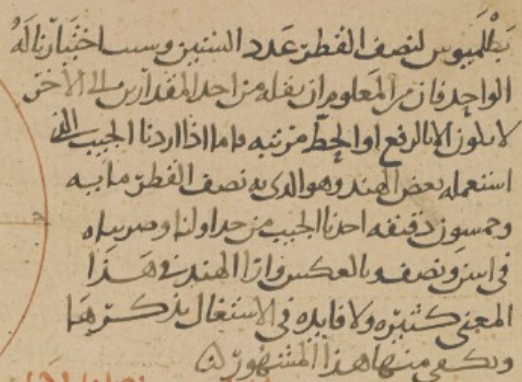 بطلميوس لنصف القطر عدد الستين وسبب اختيارنا له
الواحد فان من المعلوم ان نقله من احد المقدارين الى الآخر
لا يكون الا بالرفع او الحط مرتبة فاما اذا اردنا الجيب الذى
استعمله بعض الهند وهو الذى به نصف القطر مايه
وخمسون دقيقه اخذنا الجيب من جداولنا وضربناه
فى اثنين ونصف وبالعكس واراا الهند فى هذا
المعنى كثيره ولا فايده فى الاشتغال بذكرها
ويكفى منها هذا المشهور ه